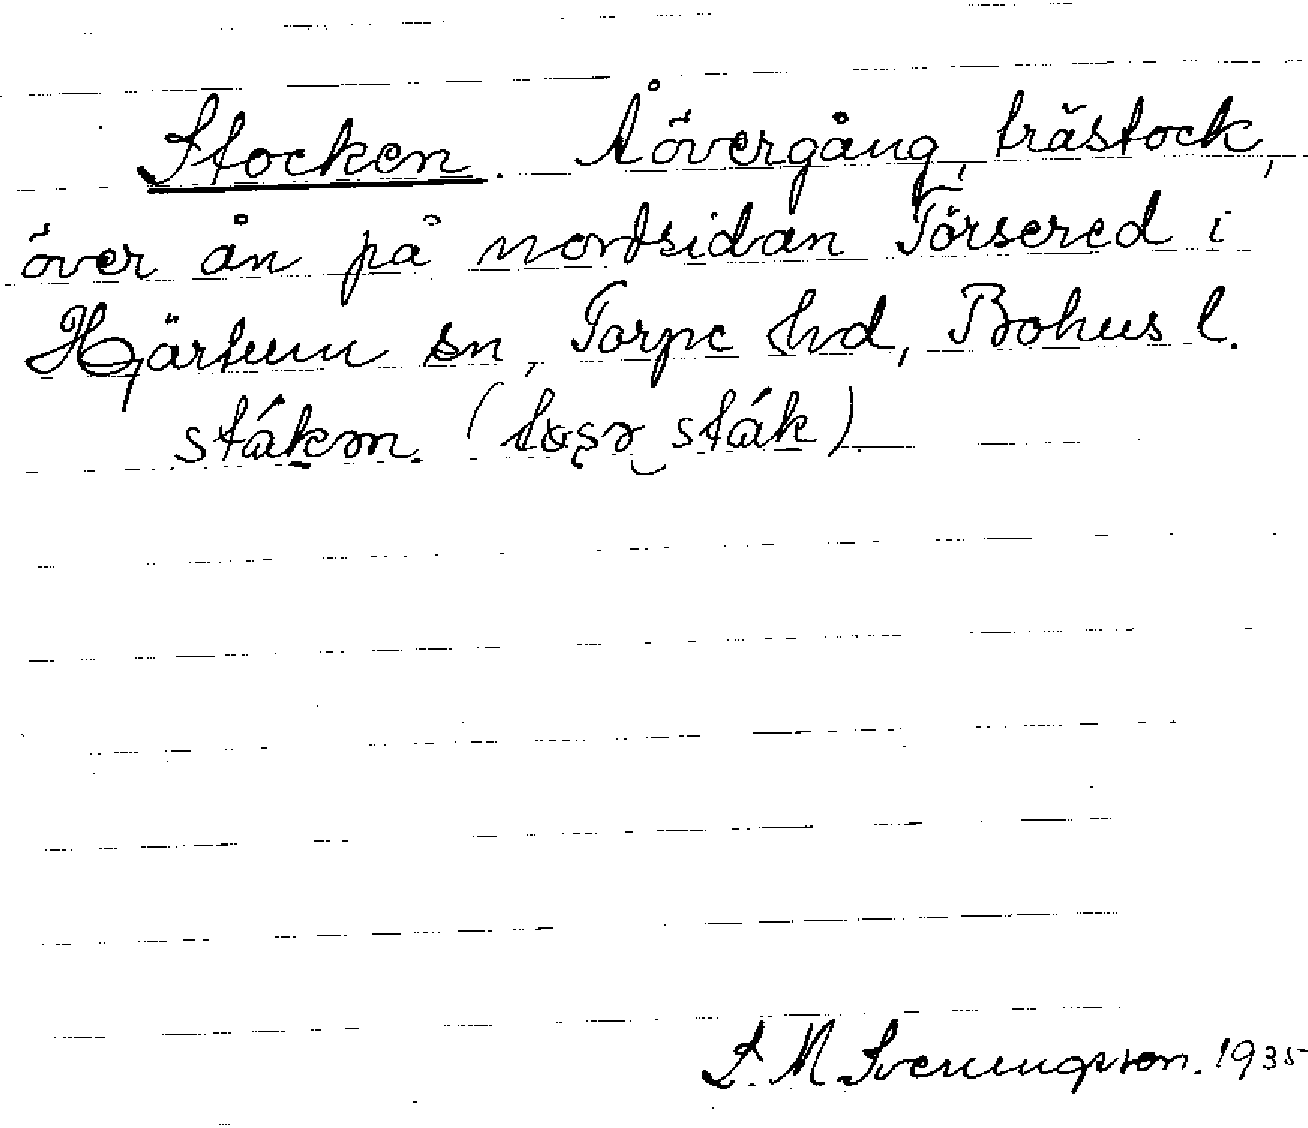 Stocken. Åövergång, trästock,
över ån på nordsidan Törsered i
Hjärtum sn, Torpe hd, Bohus l.
stákən. ( sták)
S. M. Svenungsson. 1935